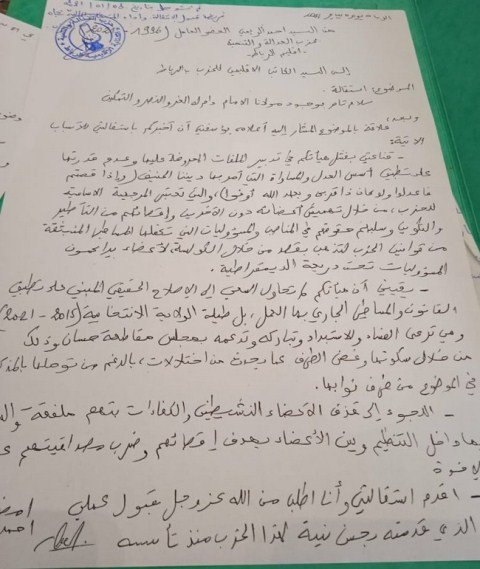 من السيد احمد الراضي العضو العامل (1996)
بحزب العدالة والتنمية
إقليم الرباط
إلى السيد الكاتب الإقليمي للحزب بالرباط
الموضوع: استقالة.
سلام تام بوجود مولانا الإمام دام له العز والنصر والتمكين
وبعد،
علاقة بالموضوع المشار إليه أعلاه، يؤسفني أن أخبركم باستقالتي للأسباب
الآتية:
- قناعتي بفشل هيأتكم في تدبير الملفات المعروضة عليها وعدم قدرتها
على تطبيق أسس العدل والمساواة التي أمر بها ديننا الحنيف (وإذا قلتم
فاعدلوا ولو كان ذا قربى وبعهد الله أوفوا)، والتي تعتبر المرجعية الأساسية
للحزب، من خلال تهميش أعضائه دون الآخرين وإقصائهم من التأطير
والتكوين وسلبهم حقوقهم في المناصب والمسؤوليات التي تكفلها المساطر المنبثقة
من قوانين الحزب للتذهب بقصد من خلال الكولسة لأعضاء يزاحمون
المسؤوليات تحت دريعة الديمقراطية.
- يقيني أن هيأتكم لم تحاول السعي إلى الإصلاح الحقيقي المبني على تطبيق
القانون والمساطر الجاري بها العمل، بل طيلة الولاية الانتخابية (2015-2021)
وهي ترعى الفساد والاستبداد وتباركه وتدعمه بمجلس مقاطعة حسان وذلك
من خلال سكوتها وغض الطرف عما يحدث من اختلالات، بالرغم من توصلها
في الموضوع من طرف نوابها.
- اللجوء إلى قذف الأعضاء النشيطين والكفاءات بتهم ملفقة
داخل التنظيم وبين الأعضاء بهدف إقصائهم وضرب مصداقيتهم
- أقدم استقالتي وأنا أطلب من الله عز وجل قبول عملي
الذي قدمته بحسن نية لهذا الحزب منذ تأسيسه